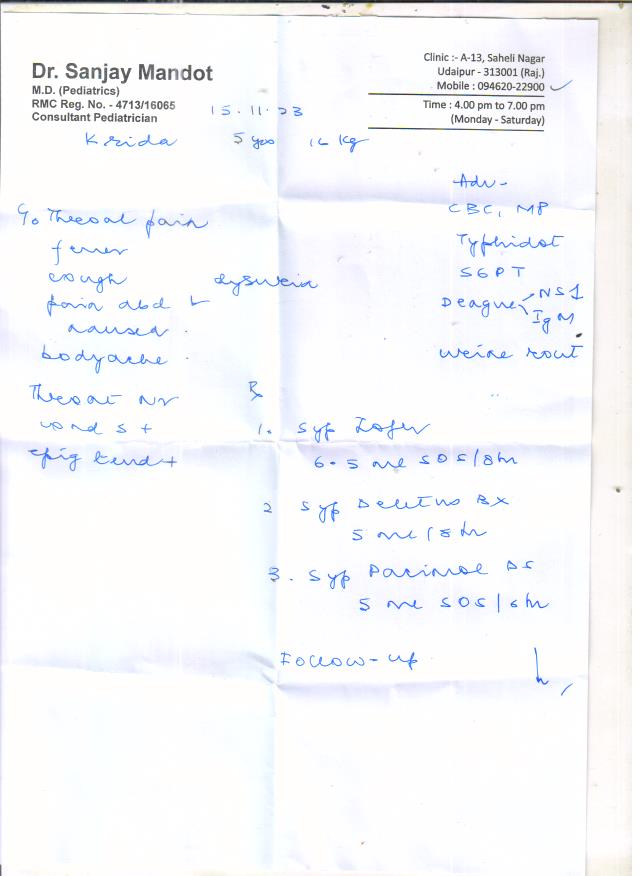 Dr. Sanjay Mandot
M.D. (Pediatrics)
RMC Reg. No. - 4713/16065
Consultant Pediatrician
Clinic :- A-13, Saheli Nagar
Udaipur - 313001 (Raj.)
Mobile : 094620-22900
Time : 4.00 pm to 7.00 pm
(Monday - Saturday)
15.11.23
Krida 5 yrs 16 kg
Adv -
CBC, MP
Typhidot
SGPT
Deague NS1
IgM
urine rout
C/o Throat pain
fever
cough
pain abd
nausea
bodyache
dysuria
Throat
epig tend +
Rx
1. Syp
6.5 ml SOS/8hr
2 Syp BX
5 ml/8hr
3. Syp Pacimol DS
5 ml SOS/6hr
Follow-up